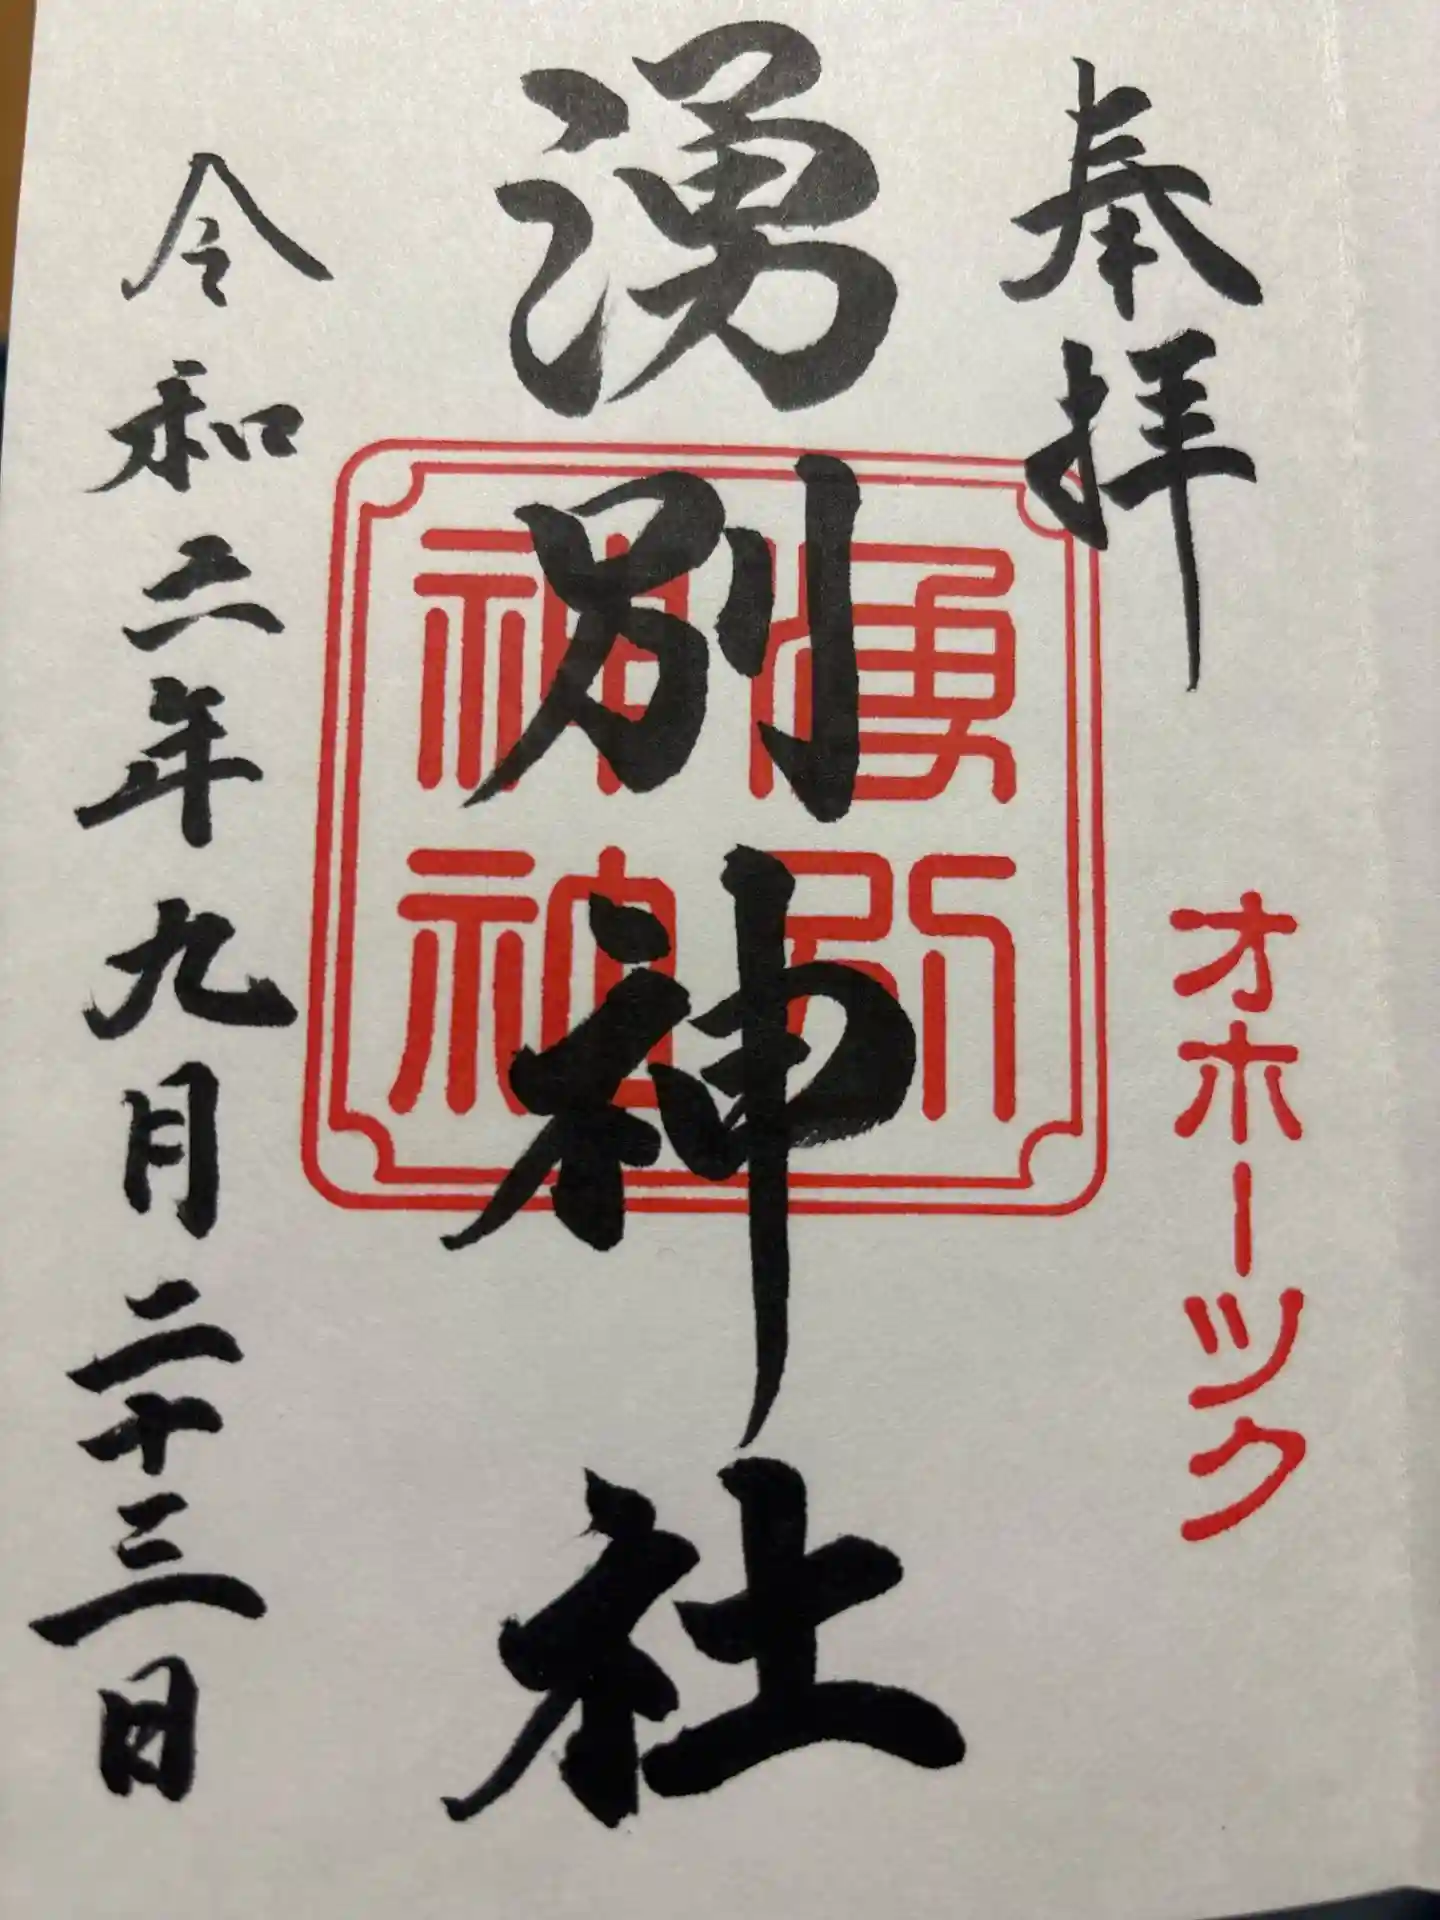 奉拝
オホーツク
湧別神社
湧別神社
令和二年九月二十三日